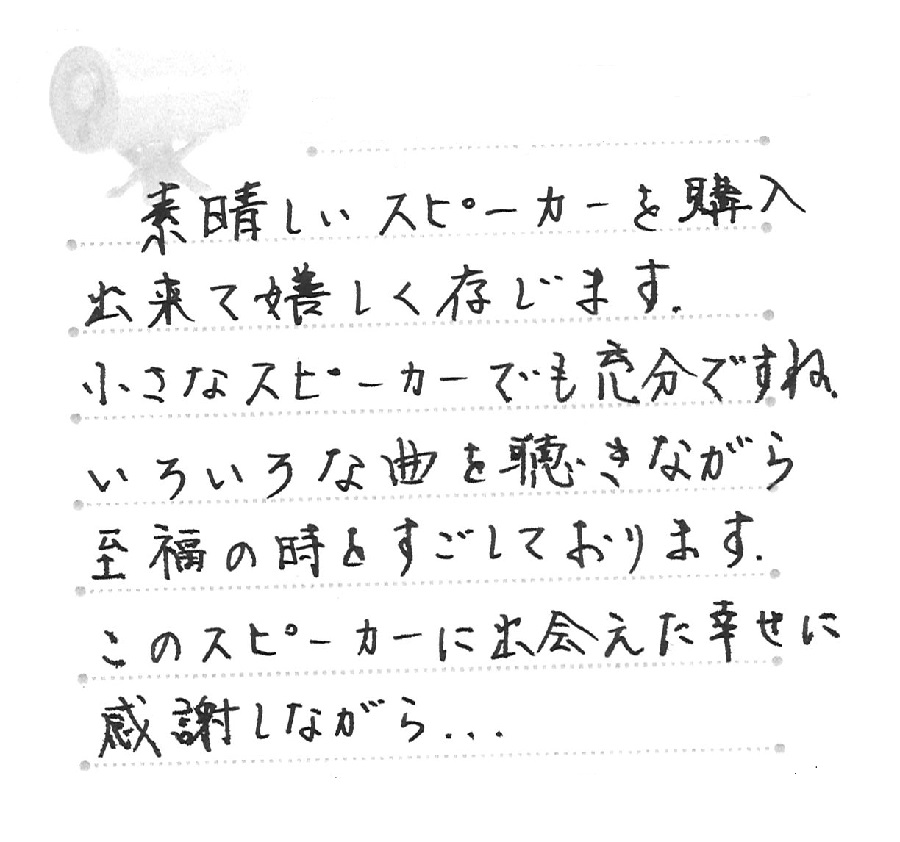 素晴しいスピーカーを購入
出来て嬉しく存じます.
小さなスピーカーでも充分ですね、
いろいろな曲を聴きながら
至福の時をすごしております.
このスピーカーに出会えた幸せに
感謝しながら...